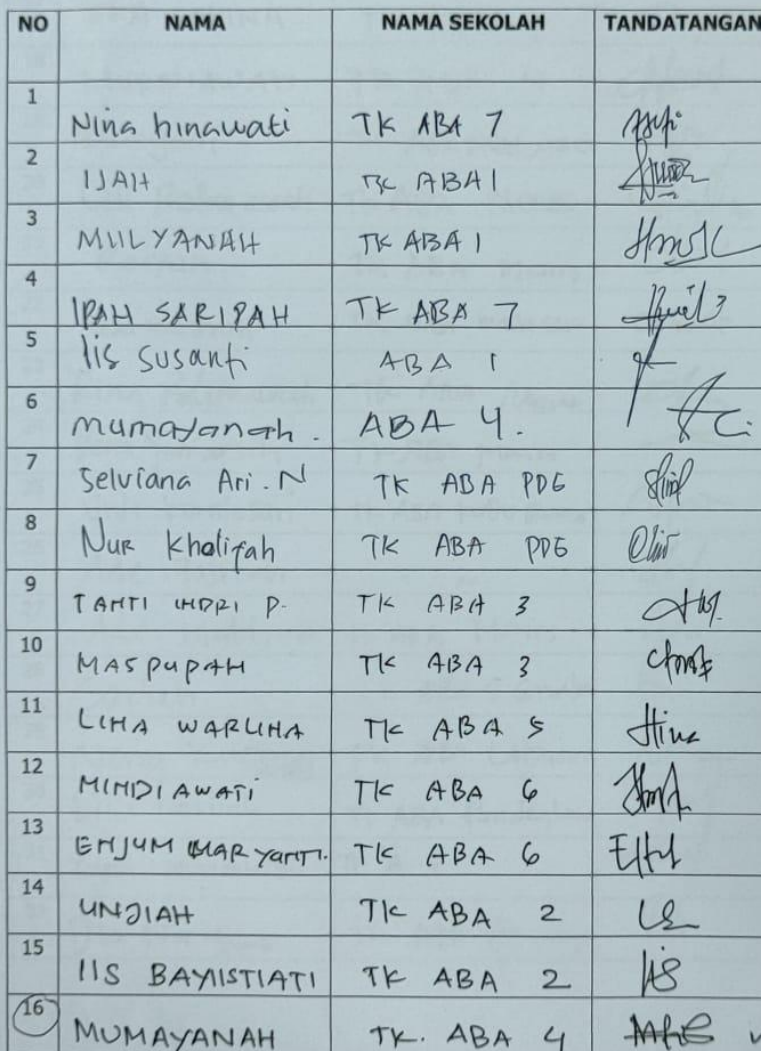 NO NAMA NAMA SEKOLAH TANDATANGAN
1 Nina hinawati TK ABA 7
2 IJAH TK ABA 1
3 MULYANAH TK ABA 1
4 IPAH SARIPAH TK ABA 7
5 Iis Susanti ABA 1
6 mumayanah. ABA 4.
7 Selviana Ari. N TK ABA PDG
8 Nur Kholifah TK ABA PDG
9 TANTI INDRI P. TK ABA 3
10 MASPUPAH TK ABA 3
11 LINA WARLINA TK ABA 5
12 MINDIAWATI TK ABA 6
13 ENJUM MARYANTI. TK ABA 6
14 UNJIAH TK ABA 2
15 IIS BAYIISTIATI TK ABA 2
16 MUMAYANAH TK. ABA 4